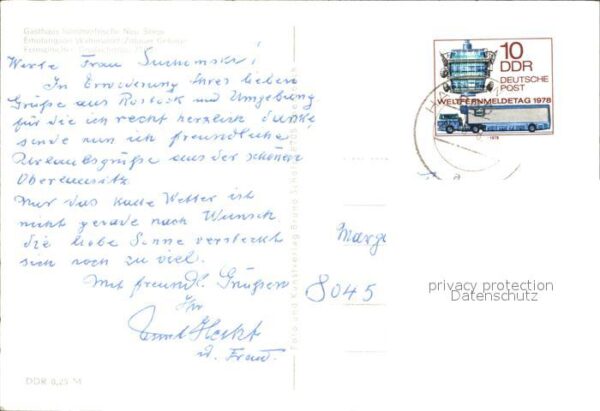 Gasthaus
Werte Frau Suchomski!
In Erwiderung Ihrer lieben
Grüße aus Rostock und Umgebung
für die ich recht herzlich danke
sende nun ich freundliche
Urlaubsgrüße aus der schönen
Oberlausitz
Nur das kalte Wetter ist
nicht gerade nach Wunsch
die liebe Sonne versteckt
sich noch zu viel.
Mit freundl. Grüßen
Ihr
u. Frau.
DDR 0,25 M
Foto und Kunstverlag Bruno Scholz
10
DDR
DEUTSCHE
POST
WELTFERNMELDETAG 1978
1978
8045
privacy protection
Datenschutz